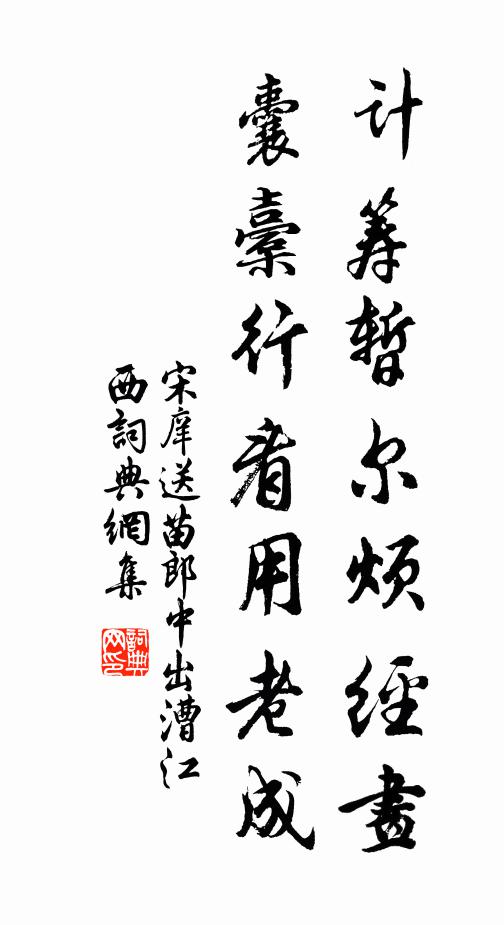 计筹暂尔烦經畫
囊橐行看用老成
宋庠送苗郎中出漕江
西詞典網集
詞典网印